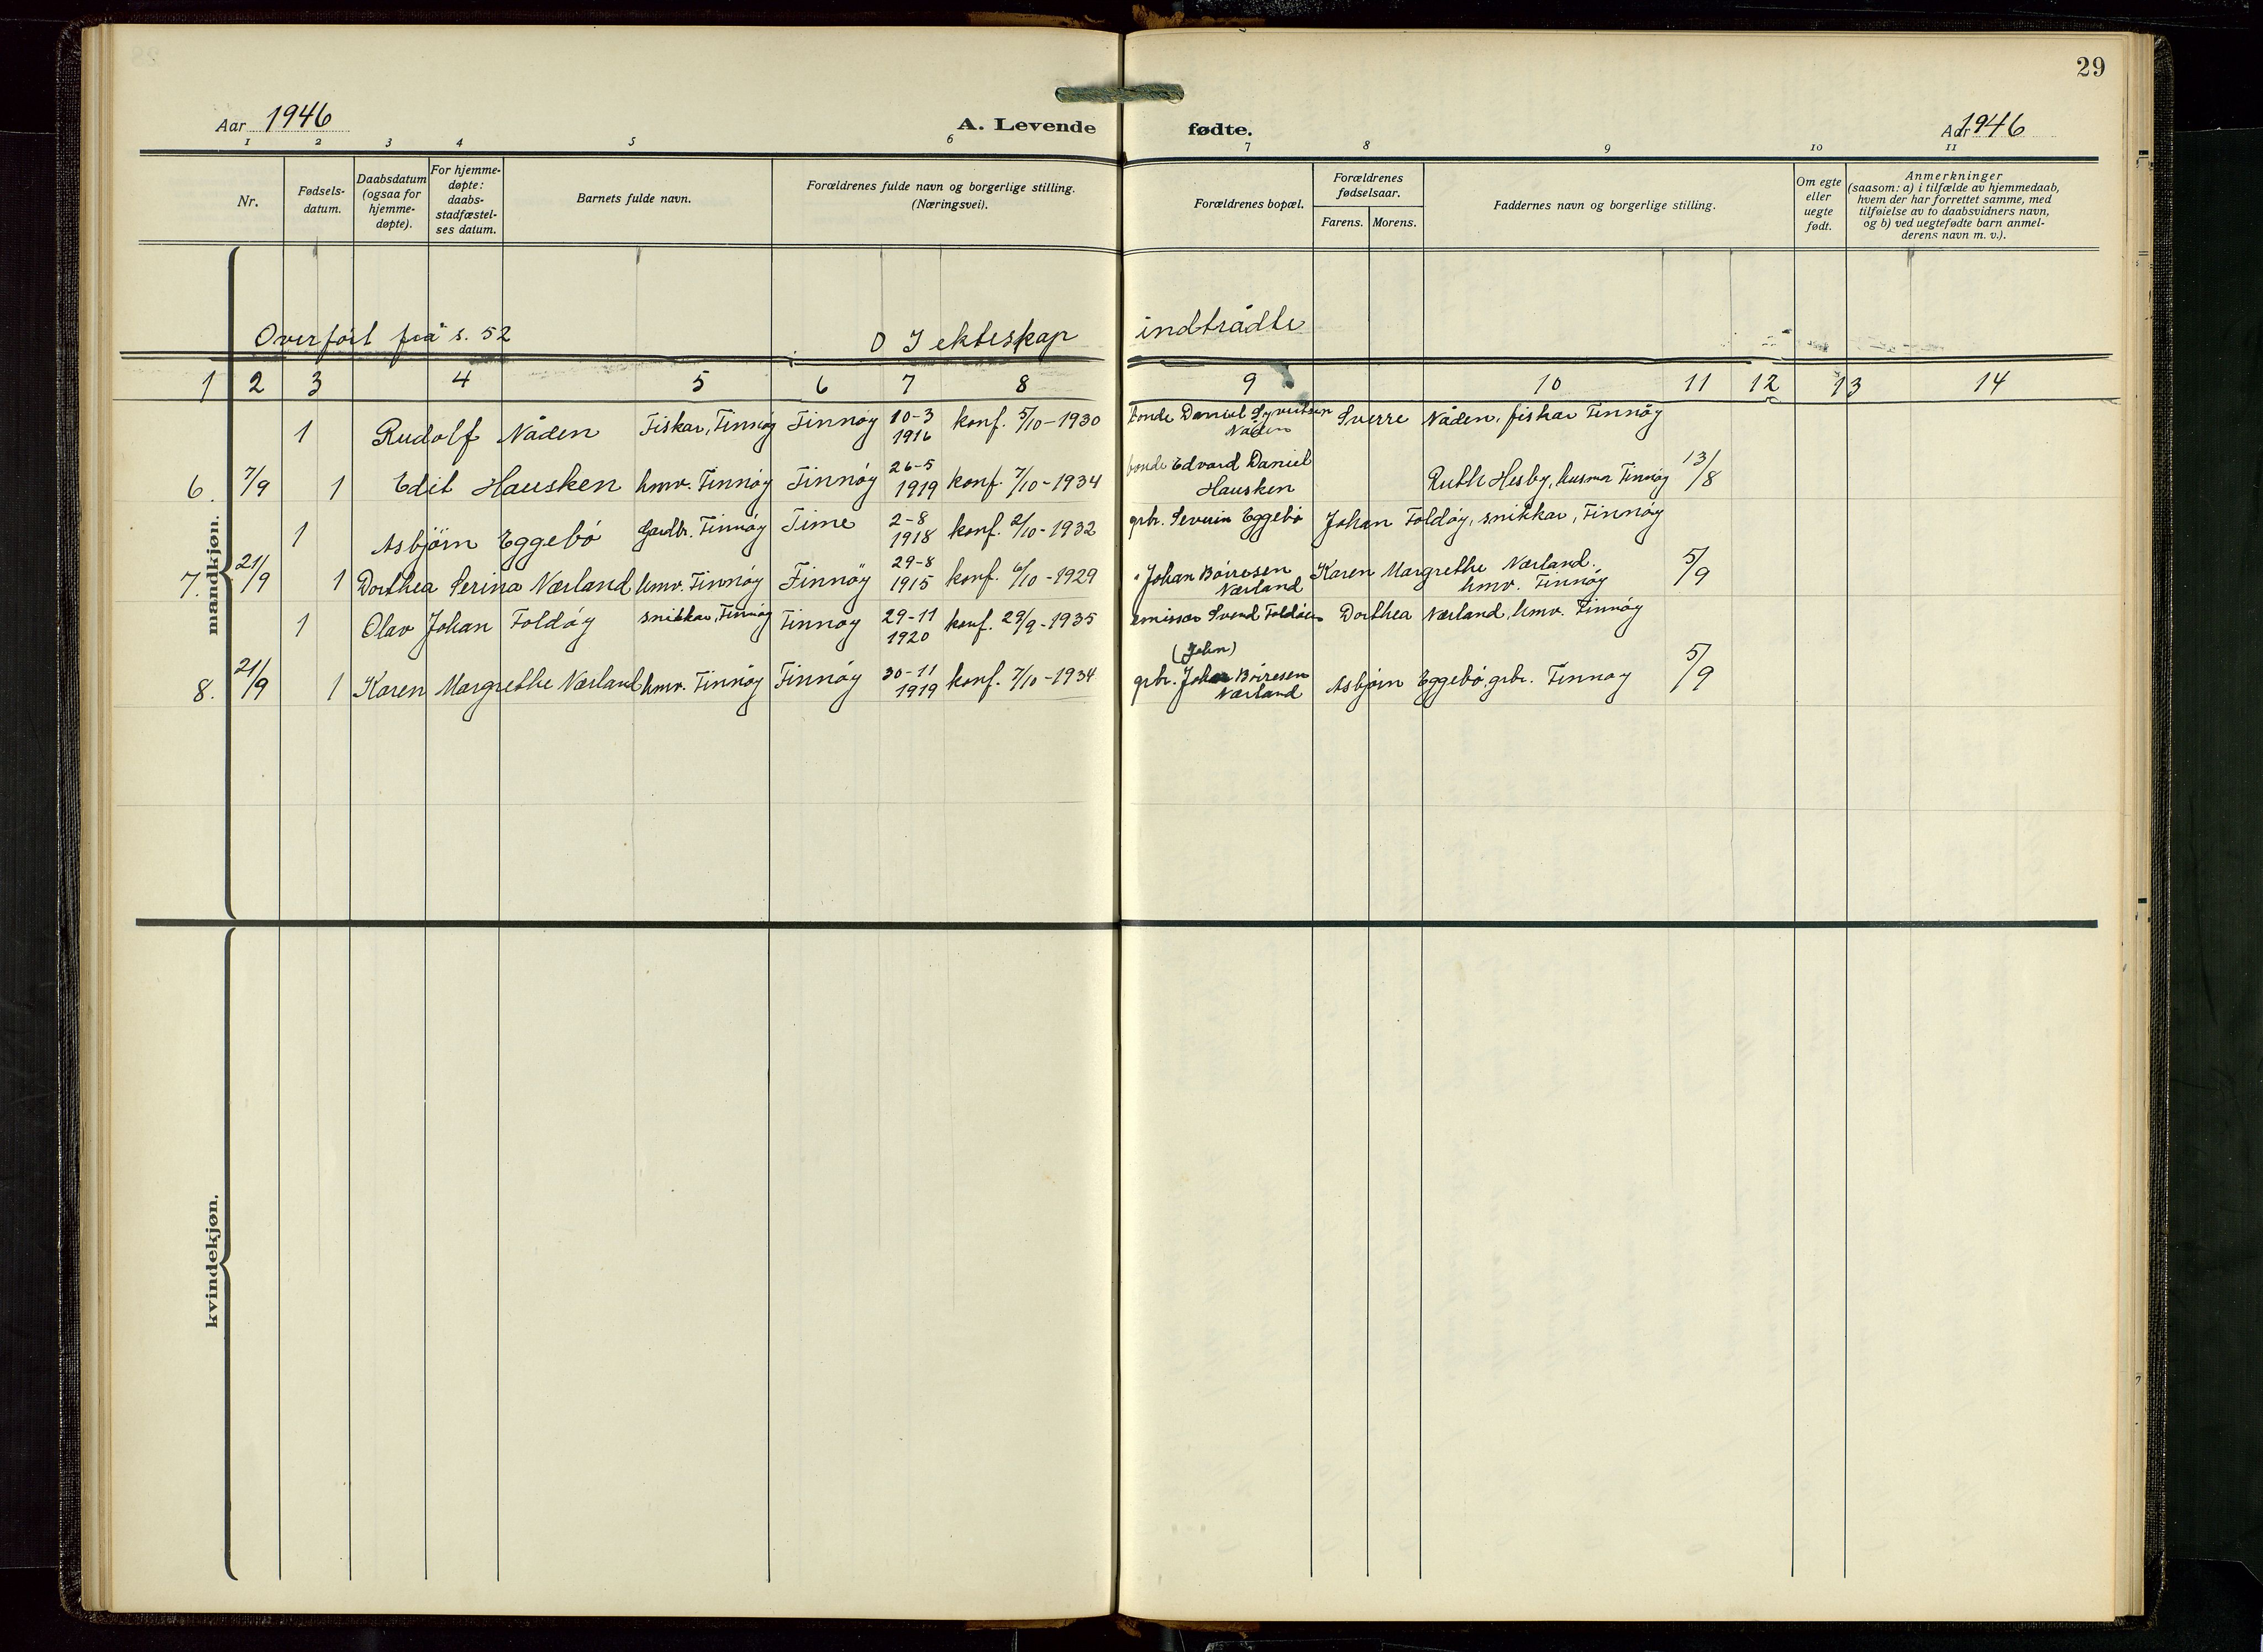 29
Aar 1946 A. Levende fødte. Aar 1946
1 2 3 4 5 6 7 8 9 10 11
Nr.
Fødsels-
datum.
Daabsdatum
(ogsaa for
hjemme-
døpte).
For hjemme-
døpte:
daabs-
stadfæstel-
ses datum.
Barnets fulde navn.
Forældrenes fulde navn og borgerlige stilling.
(Næringsvei).
Forældrenes bopæl.
Forældrenes
fødselsaar.
Farens. Morens.
Faddernes navn og borgerlige stilling.
Om egte
eller
uegte
født.
Anmerkninger
(saasom: a) i tilfælde av hjemmedaab,
hvem der har forrettet samme, med
tilføielse av to daabsvidners navn,
og b) ved uegtefødte barn anmel-
derens navn m. v.).
Overført frå s. 52 D I ekteskap indtrådte
1 2 3 4 5 6 7 8 9 10 11 12 13 14
1 Rudolf Nåden Fiskar, Finnøy Finnøy 10-3 1916 konf. 5/10-1930 bonde Daniel Syvertsen Nåden Sverre Nåden, fiskar Finnøy
6. 7/9 1 Edit Hausken hmv. Finnøy Finnøy 26-5 1919 konf. 7/10-1934 bonde Edvard Daniel Hausken Ruth Hesby, husmor Finnøy 13/8
1 Asbjørn Eggebø Gardbr. Finnøy Time 2-8 1918 konf. 2/10-1932 grbr. Severin Eggebø Johan Foldøy, snikkar, Finnøy
7. 21/9 1 Dorthea Serina Nærland hmv. Finnøy Finnøy 29-8 1915 konf. 6/10-1929 " Johan Børresen Nærland Karen Margrethe Nærland. hmv. Finnøy 5/9
1 Olav Johan Foldøy snikkar, Finnøy Finnøy 29-11 1920 konf. 29/9-1935 emissær Svend Foldøen Dorthea Nærland, hmv. Finnøy
(John)
8. 21/9 1 Karen Margrethe Nærland hmv. Finnøy Finnøy 30-11 1919 konf. 7/10-1934 grbr. Johan Børresen Nærland Asbjørn Eggebø, grbr. Finnøy 5/9
mandkjøn.
kvindekjøn.